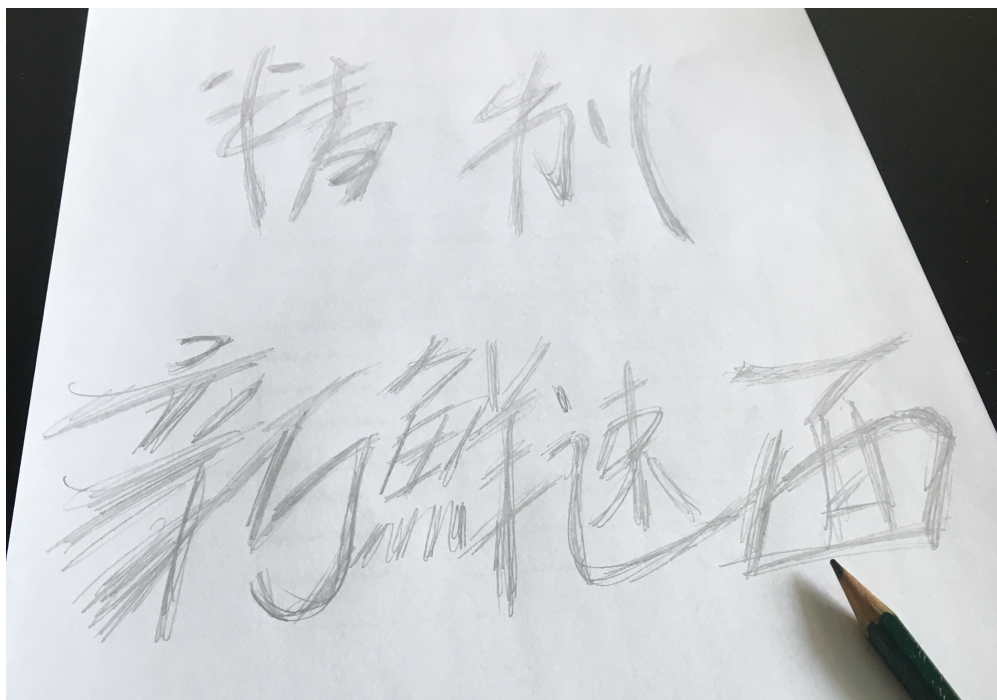 精制
新鮮速面